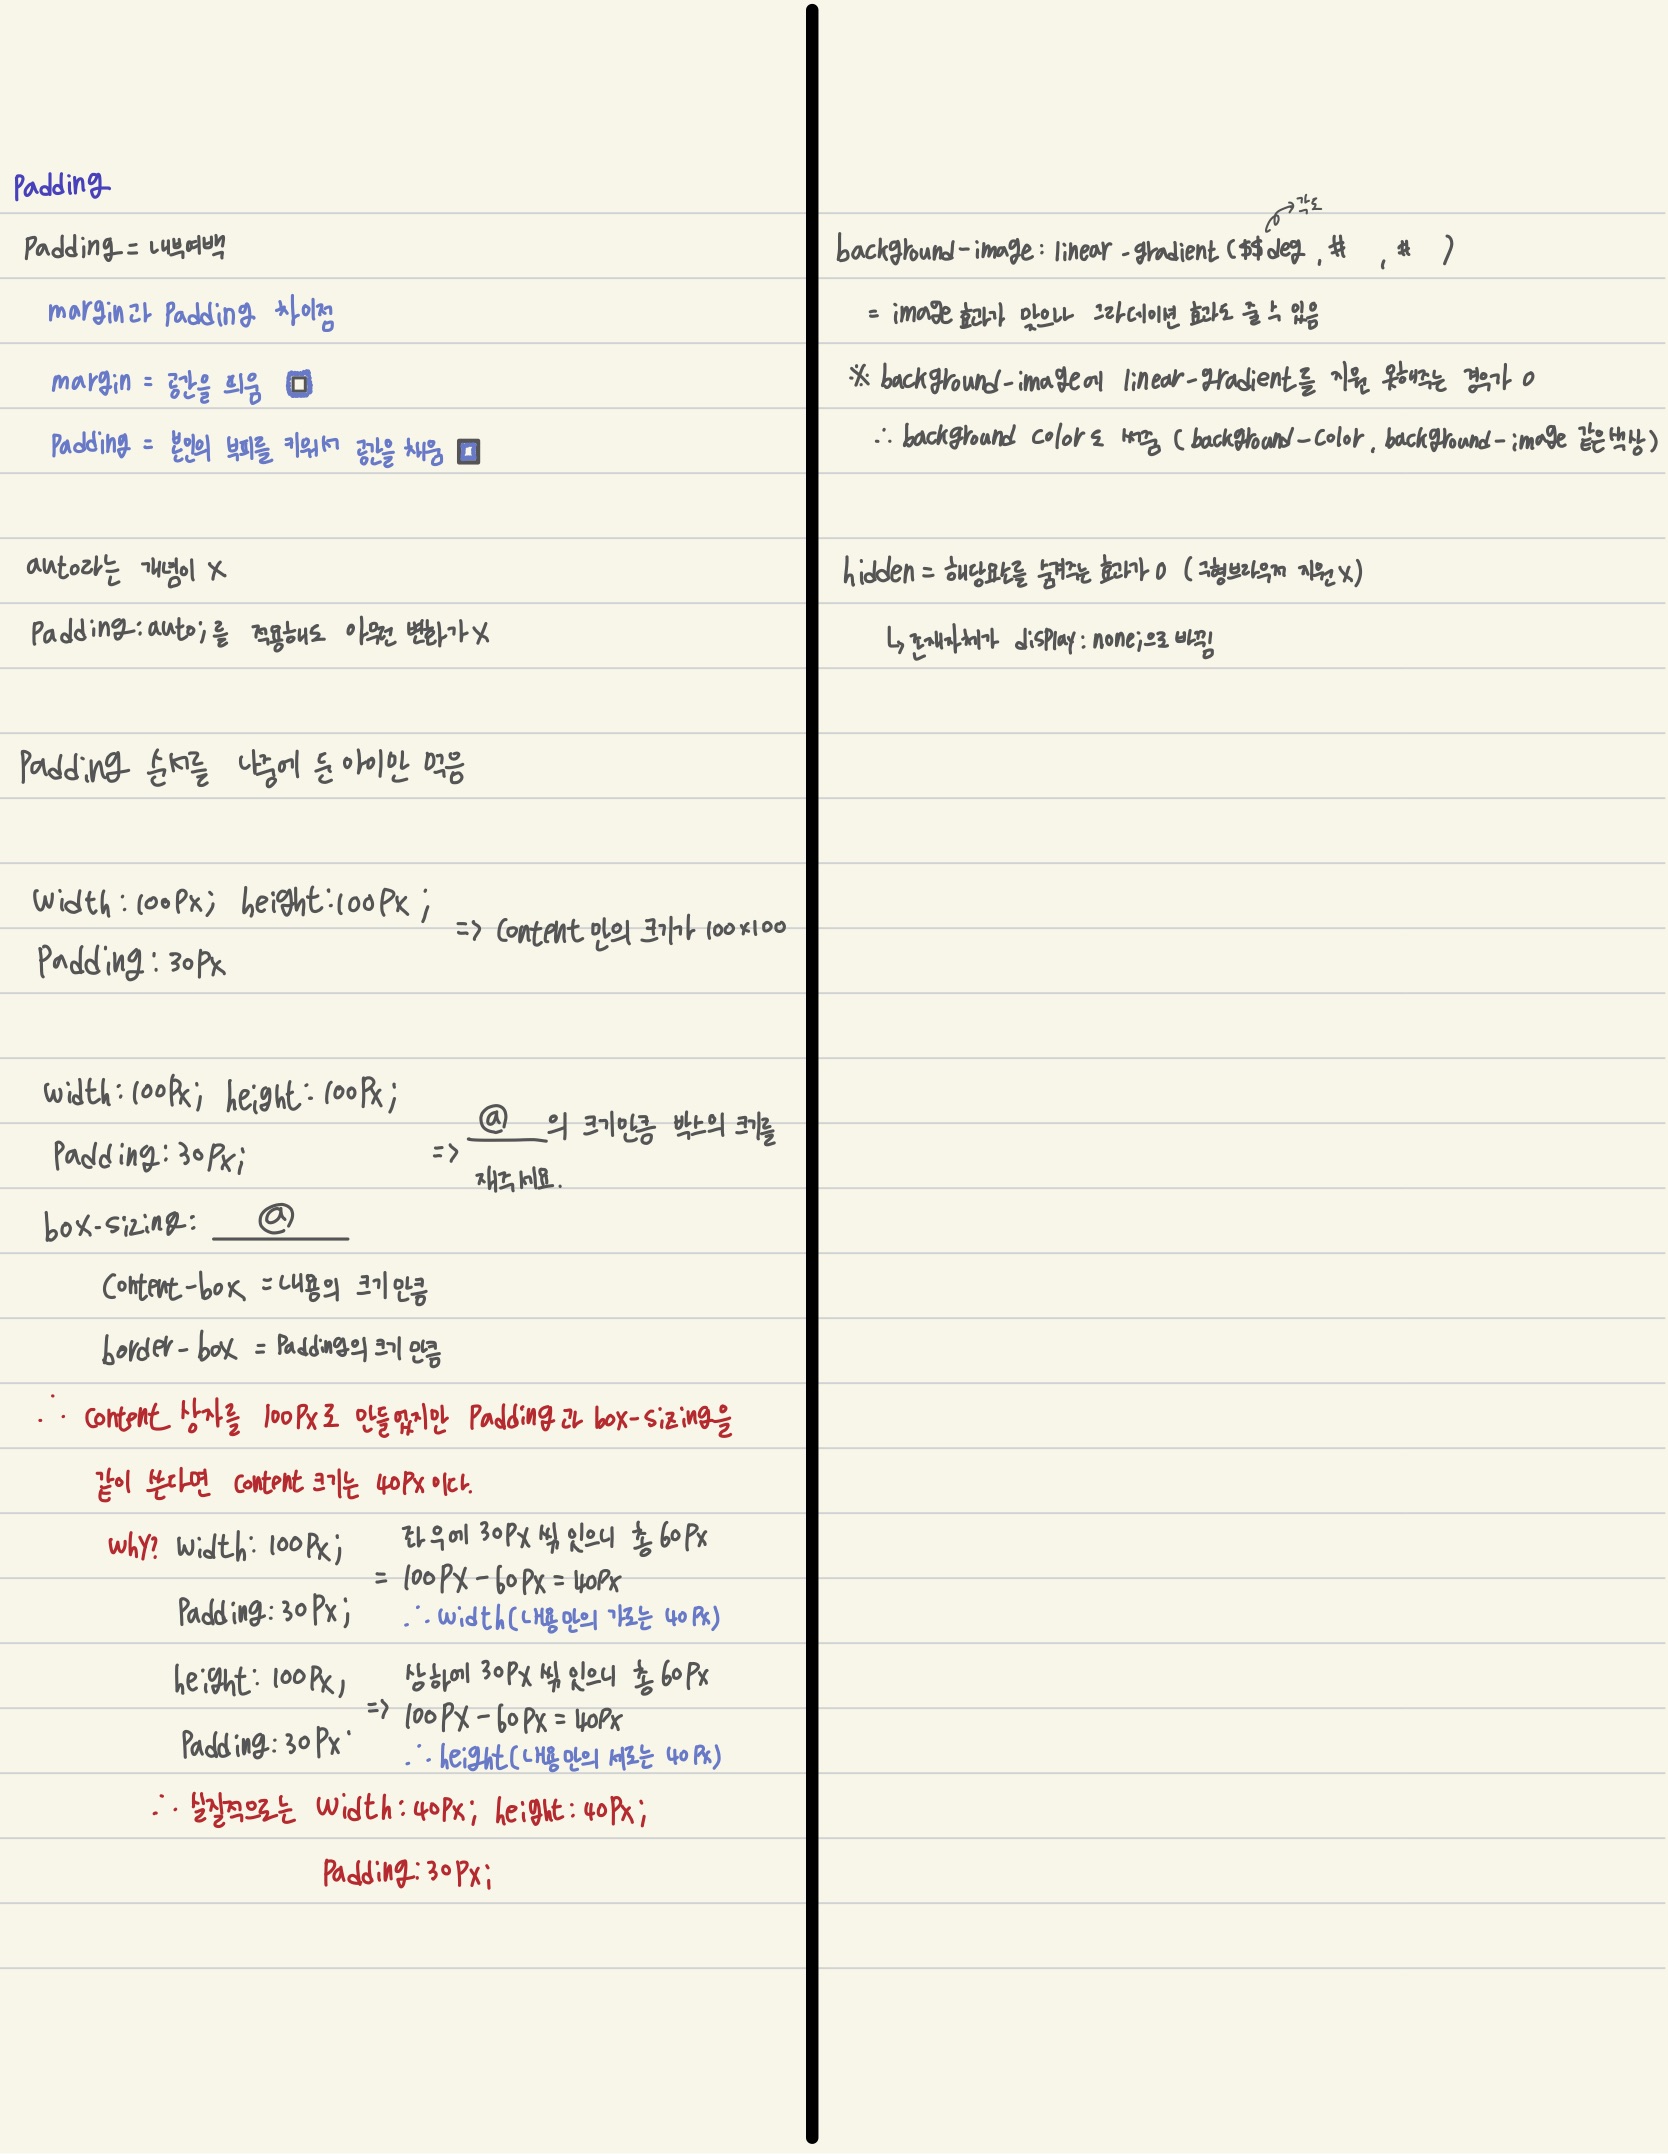 Padding
Padding = 내부여백
margin과 Padding 차이점
margin = 공간을 띄움
Padding = 본인의 부피를 키워서 공간을 채움
auto라는 개념이 X
Padding: auto;를 적용해도 아무런 변화가 X
Padding 순서를 나중에 둔 아이만 먹음
width: 100Px; height: 100Px;
Padding: 30Px
=> Content 만의 크기가 100x100
width: 100Px; height: 100Px;
Padding: 30Px;
box-sizing: @
=> @ 의 크기만큼 박스의 크기를
재주세요.
Content-box = 내용의 크기 만큼
border-box = Padding의 크기 만큼
∴ Content 상자를 100Px로 만들었지만 Padding과 box-sizing을
같이 쓴다면 Content 크기는 40Px 이다.
WhY? width: 100Px;
Padding: 30Px;
좌우에 30Px 씩 있으니 총 60Px
= 100Px - 60Px = 40Px
∴ width(내용만의 가로는 40Px)
height: 100Px;
Padding: 30Px
상하에 30Px 씩 있으니 총 60Px
=> 100Px - 60Px = 40Px
∴ height(내용만의 세로는 40Px)
∴ 실질적으로는 Width: 40Px; height: 40Px;
Padding: 30Px;
각도
background-image: linear-gradient ($$deg, # , # )
= image 효과가 맞으나 그라데이션 효과도 줄 수 있음
※ background-image에 linear-gradient를 지원 못해주는 경우가 O
∴ background Color도 써줌 (background-Color, background-image 같은색상)
hidden = 해당요소를 숨겨주는 효과가 O (구형브라우저 지원X)
↳ 존재자체가 disPlay: none;으로 바뀜